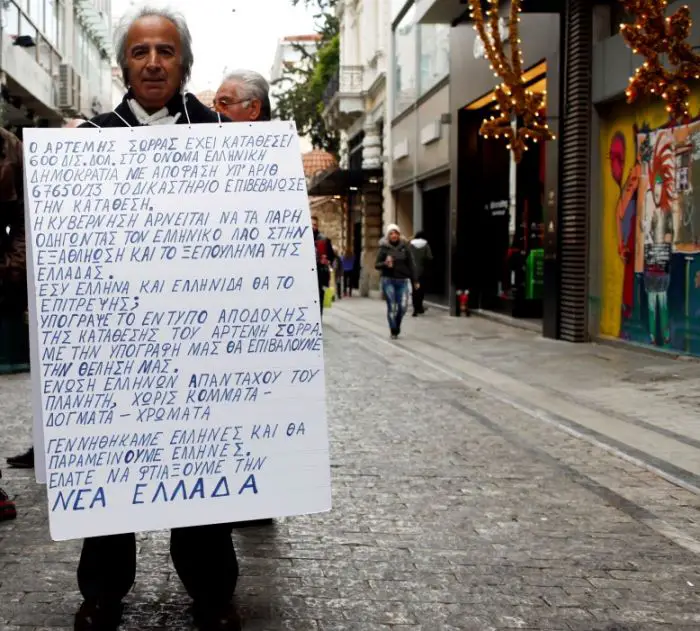 Ο ΑΡΤΕΜΗΣ ΣΩΡΡΑΣ ΕΧΕΙ ΚΑΤΑΘΕΣΕΙ
600 ΔΙΣ. ΔΟΛ. ΣΤΟ ΟΝΟΜΑ ΕΛΛΗΝΙΚΗ
ΔΗΜΟΚΡΑΤΙΑ ΜΕ ΑΠΟΦΑΣΗ ΥΠ' ΑΡΙΘ
67650/13 ΤΟ ΔΙΚΑΣΤΗΡΙΟ ΕΠΙΒΕΒΑΙΩΣΕ
ΤΗΝ ΚΑΤΑΘΕΣΗ.
Η ΚΥΒΕΡΝΗΣΗ ΑΡΝΕΙΤΑΙ ΝΑ ΤΑ ΠΑΡΗ
ΟΔΗΓΩΝΤΑΣ ΤΟΝ ΕΛΛΗΝΙΚΟ ΛΑΟ ΣΤΗΝ
ΕΞΑΘΛΗΩΣΗ ΚΑΙ ΤΟ ΞΕΠΟΥΛΗΜΑ ΤΗΣ
ΕΛΛΑΔΑΣ.
ΕΣΥ ΕΛΛΗΝΑ ΚΑΙ ΕΛΛΗΝΙΔΑ ΘΑ ΤΟ
ΕΠΙΤΡΕΨΗΣ;
ΥΠΟΓΡΑΨΕ ΤΟ ΕΝΤΥΠΟ ΑΠΟΔΟΧΗΣ
ΤΗΣ ΚΑΤΑΘΕΣΗΣ ΤΟΥ ΑΡΤΕΜΗ ΣΩΡΡΑ.
ΜΕ ΤΗΝ ΥΠΟΓΡΑΦΗ ΜΑΣ ΘΑ ΕΠΙΒΑΛΟΥΜΕ
ΤΗΝ ΘΕΛΗΣΗ ΜΑΣ.
ΕΝΩΣΗ ΕΛΛΗΝΩΝ ΑΠΑΝΤΑΧΟΥ ΤΟΥ
ΠΛΑΝΗΤΗ, ΧΩΡΙΣ ΚΟΜΜΑΤΑ -
ΔΟΓΜΑΤΑ - ΧΡΩΜΑΤΑ
ΓΕΝΝΗΘΗΚΑΜΕ ΕΛΛΗΝΕΣ ΚΑΙ ΘΑ
ΠΑΡΑΜΕΙΝΟΥΜΕ ΕΛΛΗΝΕΣ.
ΕΛΑΤΕ ΝΑ ΦΤΙΑΞΟΥΜΕ ΤΗΝ
ΝΕΑ ΕΛΛΑΔΑ